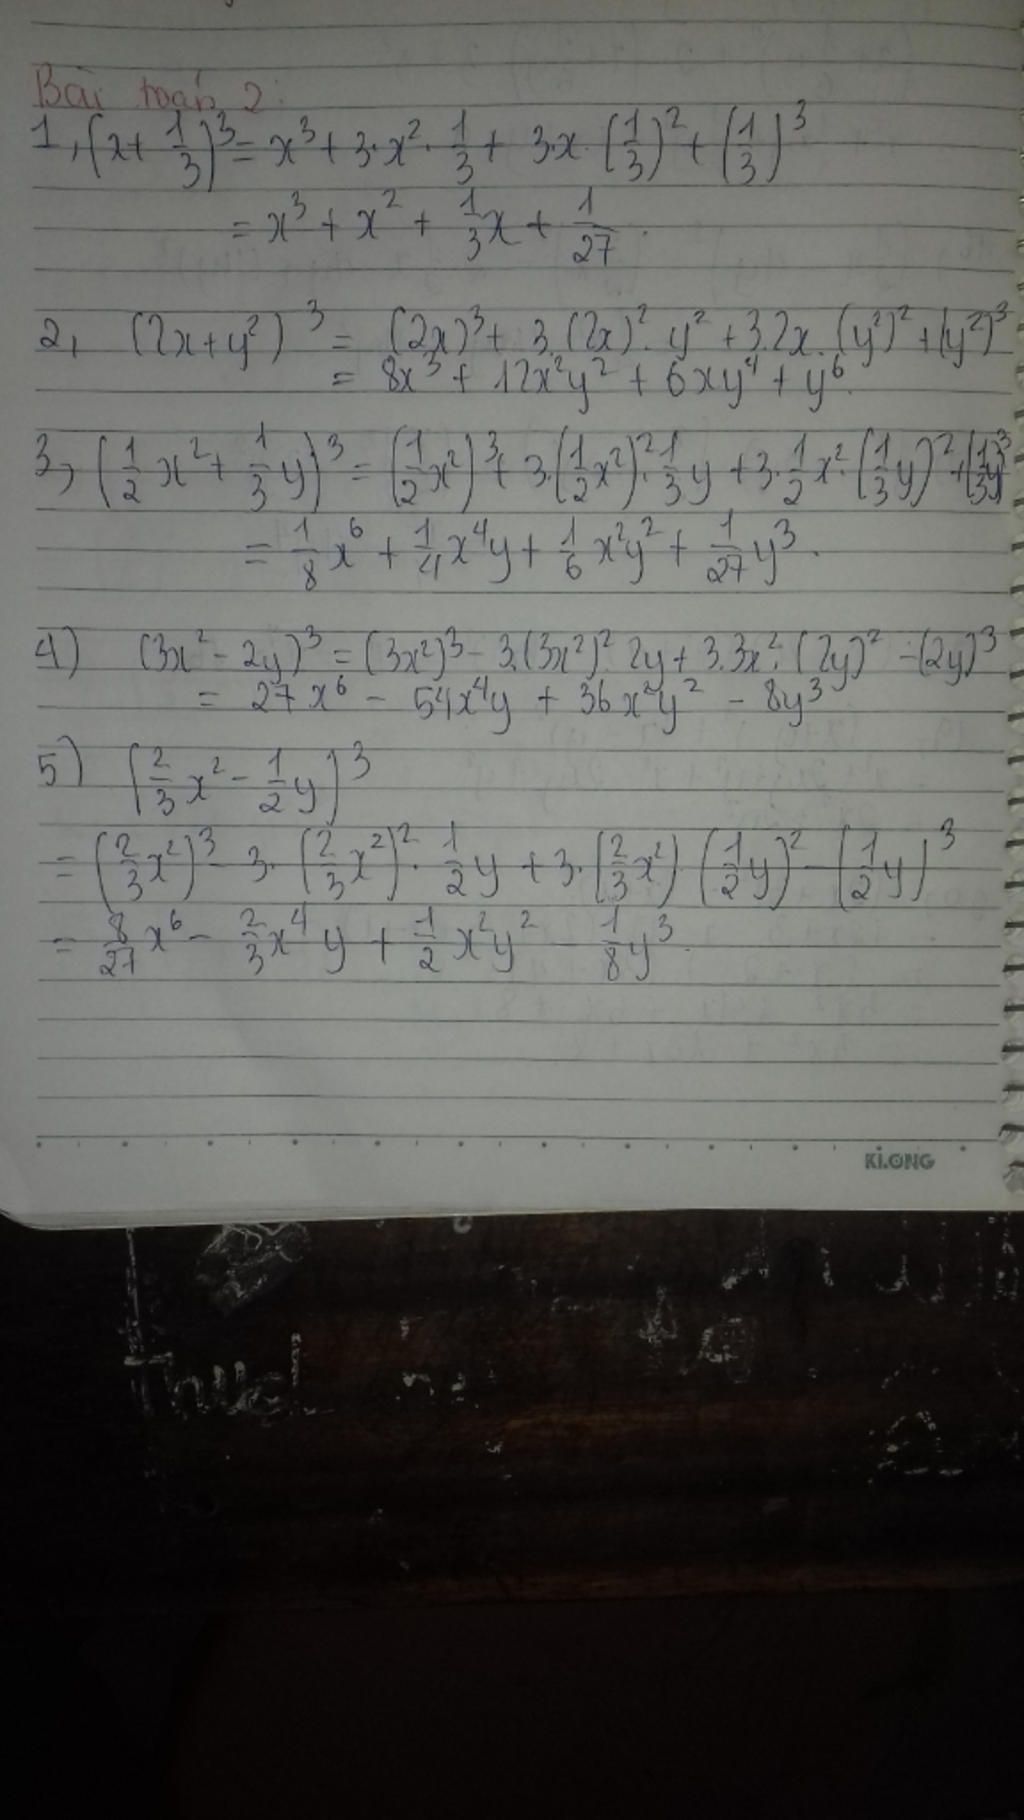 Bài toán 2:
1, (x + 1/3)³ = x³ + 3·x²·1/3 + 3·x·(1/3)² + (1/3)³
= x³ + x² + 1/3x + 1/27.
2, (2x+y²)³ = (2x)³ + 3.(2x)².y² + 3.2x.(y²)² + (y²)³
= 8x³ + 12x²y² + 6xy⁴ + y⁶.
3, (1/2x² + 1/3y)³ = (1/2x²)³ + 3.(1/2x²)².1/3y + 3.1/2x².(1/3y)² + (1/3y)³
= 1/8x⁶ + 1/4x⁴y + 1/6x²y² + 1/27y³.
4) (3x² - 2y)³ = (3x²)³ - 3.(3x²)².2y + 3.3x².(2y)² - (2y)³
= 27x⁶ - 54x⁴y + 36x²y² - 8y³
5) (2/3x² - 1/2y)³
= (2/3x²)³ - 3.(2/3x²)².1/2y + 3.(2/3x²).(1/2y)² - (1/2y)³
= 8/27x⁶ - 2/3x⁴y + 1/2x²y² - 1/8y³.
KLONG